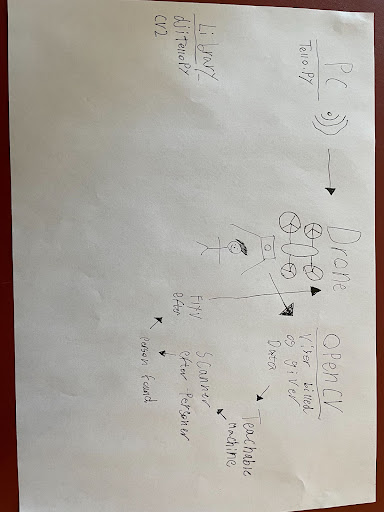 PC
Tello.Py
Drone
OPenCV
Viser billed
og giver
Data
Teachable
machine
Scanner
efter Personer
Person found
Flyv
efter
Library
djitelloPy
CV2